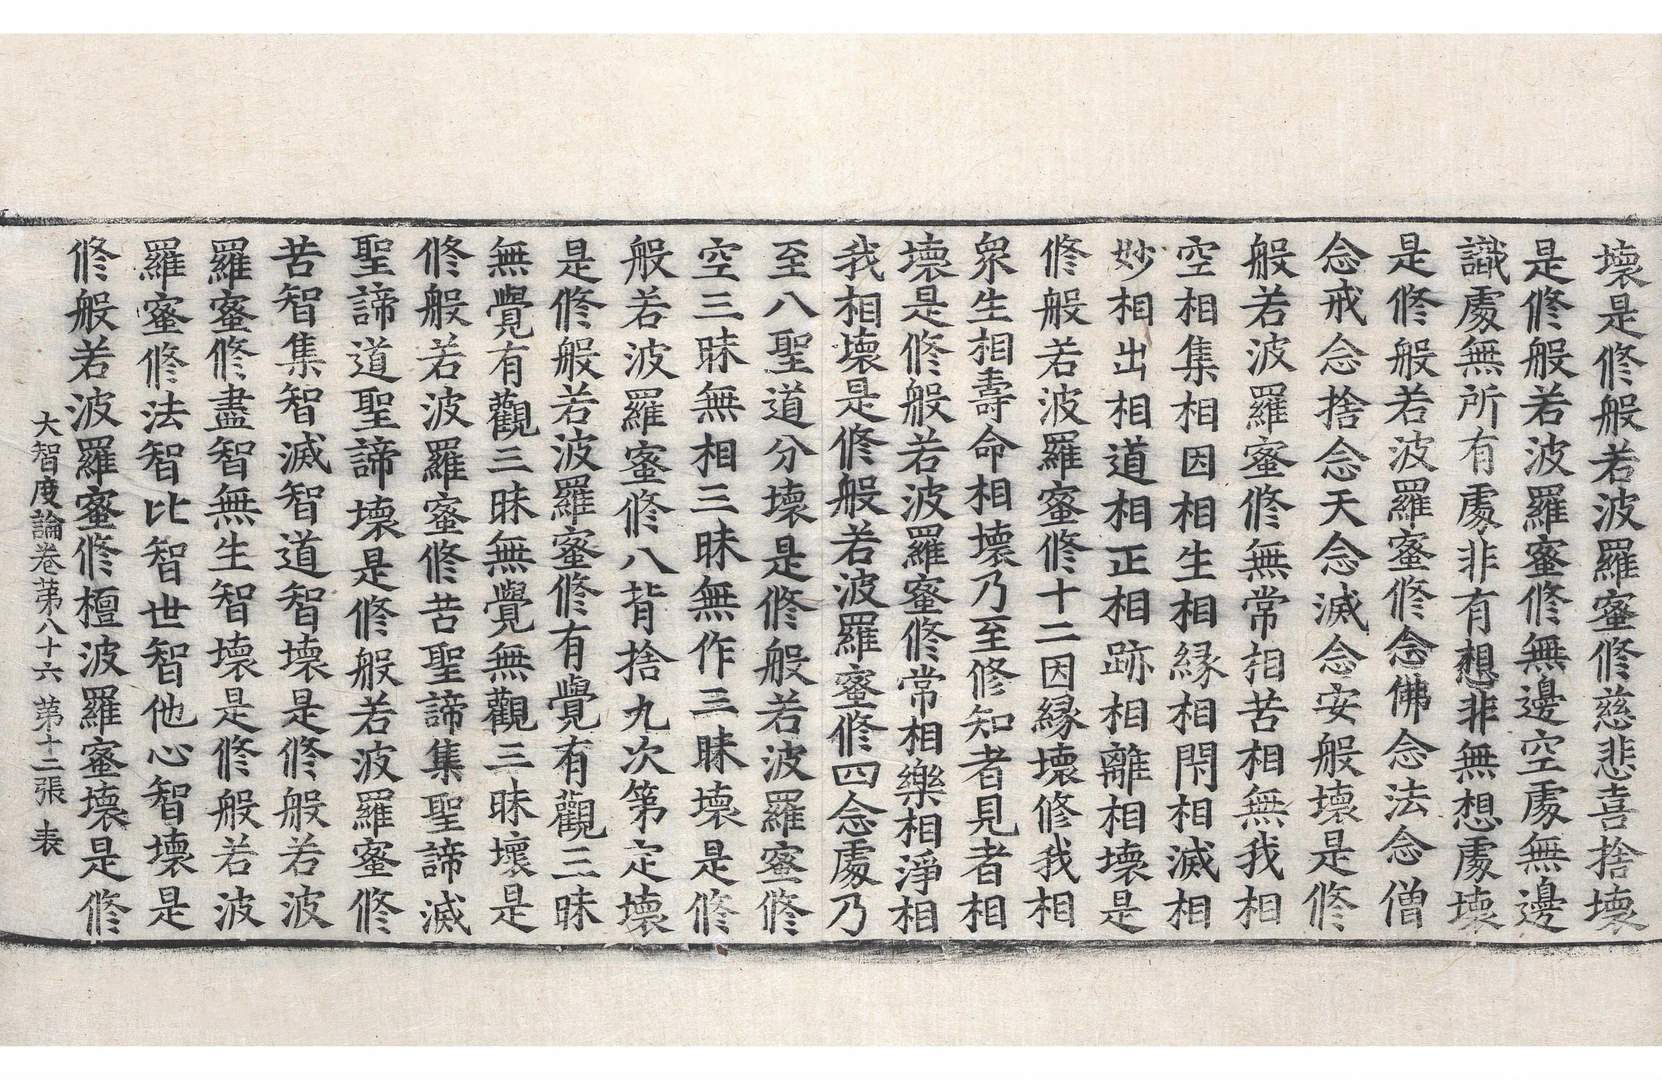 壞是修般若波羅蜜修慈悲喜捨壞
是修般若波羅蜜修無邊空處無邊
識處無所有處非有想非無想處壞
是修般若波羅蜜修念佛念法念僧
念戒念捨念天念滅念安般壞是修
般若波羅蜜修無常相苦相無我相
空相集相因相生相緣相閇相滅相
妙相出相道相正相跡相離相壞是
修般若波羅蜜修十二因緣壞修我相
衆生相壽命相壞乃至修知者見者相
壞是修般若波羅蜜修常相樂相淨相
我相壞是修般若波羅蜜修四念處乃
至八聖道分壞是修般若波羅蜜修
空三昧無相三昧無作三昧壞是修
般若波羅蜜修八背捨九次第定壞
是修般若波羅蜜修有覺有觀三昧
無覺有觀三昧無覺無觀三昧壞是
修般若波羅蜜修苦聖諦集聖諦滅
聖諦道聖諦壞是修般若波羅蜜修
苦智集智滅智道智壞是修般若波
羅蜜修盡智無生智壞是修般若波
羅蜜修法智比智世智他心智壞是
修般若波羅蜜修檀波羅蜜壞是修
大智度論卷第八十六 第十二張 表